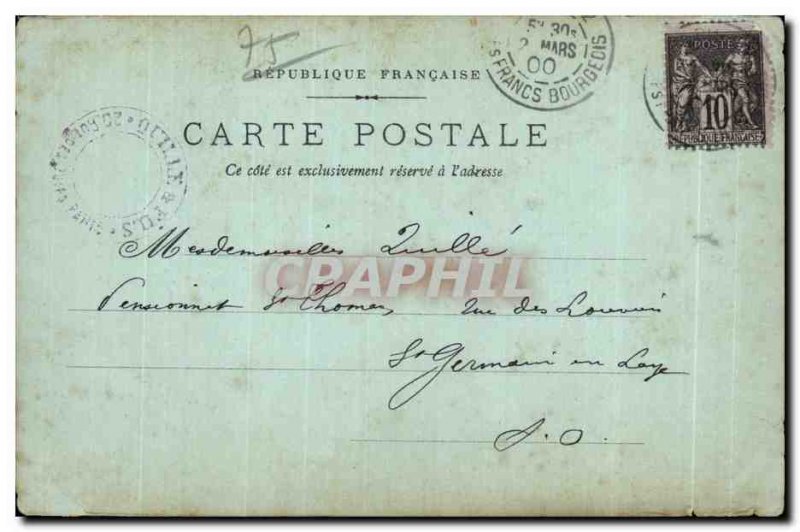 75
5E 30
2 MARS
00
FRANCS BOURGEOIS
POSTE
10
REPUBLIQUE FRANÇAISE
RÉPUBLIQUE FRANÇAISE
CARTE POSTALE
Ce côté est exclusivement réservé à l'adresse
Mesdemoiselles Quillé
CPRAPHIL
Pensionnat St Thomas, rue des Louviers
St Germain en Laye
S. O.